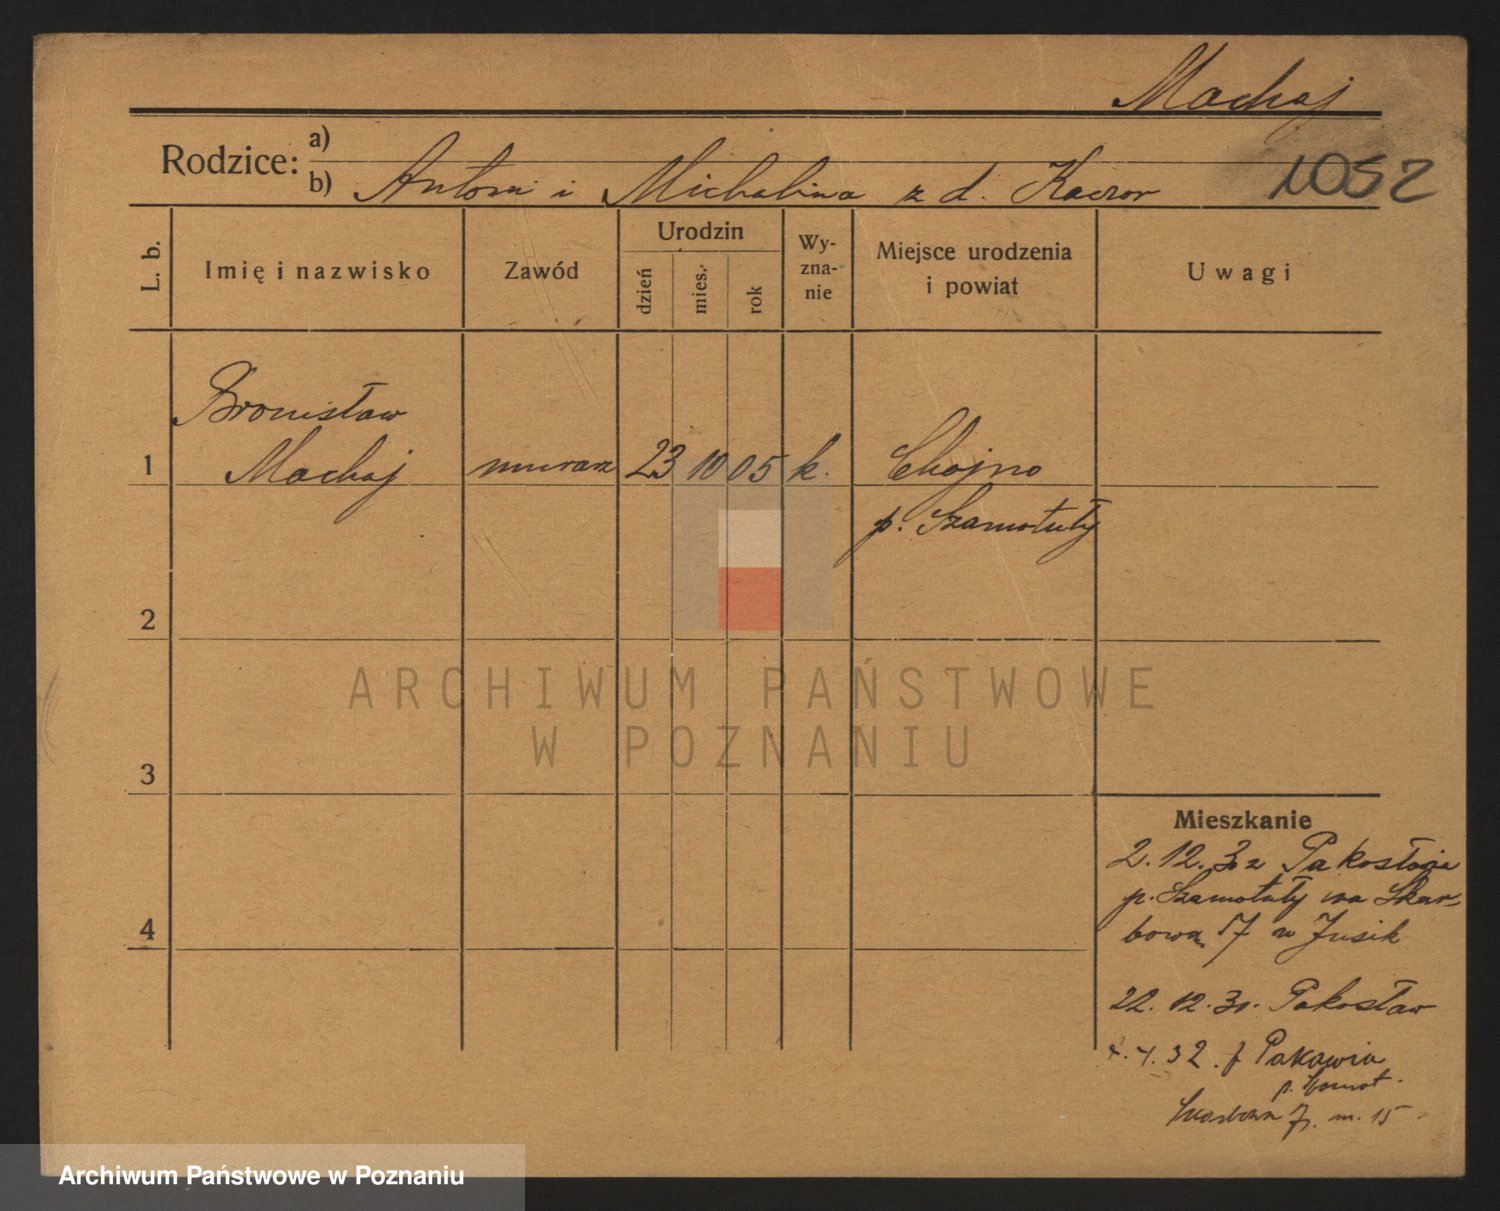 Machaj
Rodzice: a)
b) Antoni i Michalina z d. Kaczor
1052
L. b.
Imię i nazwisko
Zawód
Urodzin
dzień
mies.
rok
Wy-
zna-
nie
Miejsce urodzenia
i powiat
Uwagi
Bronisław
1 Machaj murarz 23 10 05 k. Chojno
p. Szamotuły
2
3
4
ARCHIWUM PAŃSTWOWE
W POZNANIU
Mieszkanie
2.12.30 z
p. Szamotuły na Skar-
bowa 17 u Jusik
22.12.30. Pakosław
4.32. z
p. Szamot.
m. 15
Archiwum Państwowe w Poznaniu